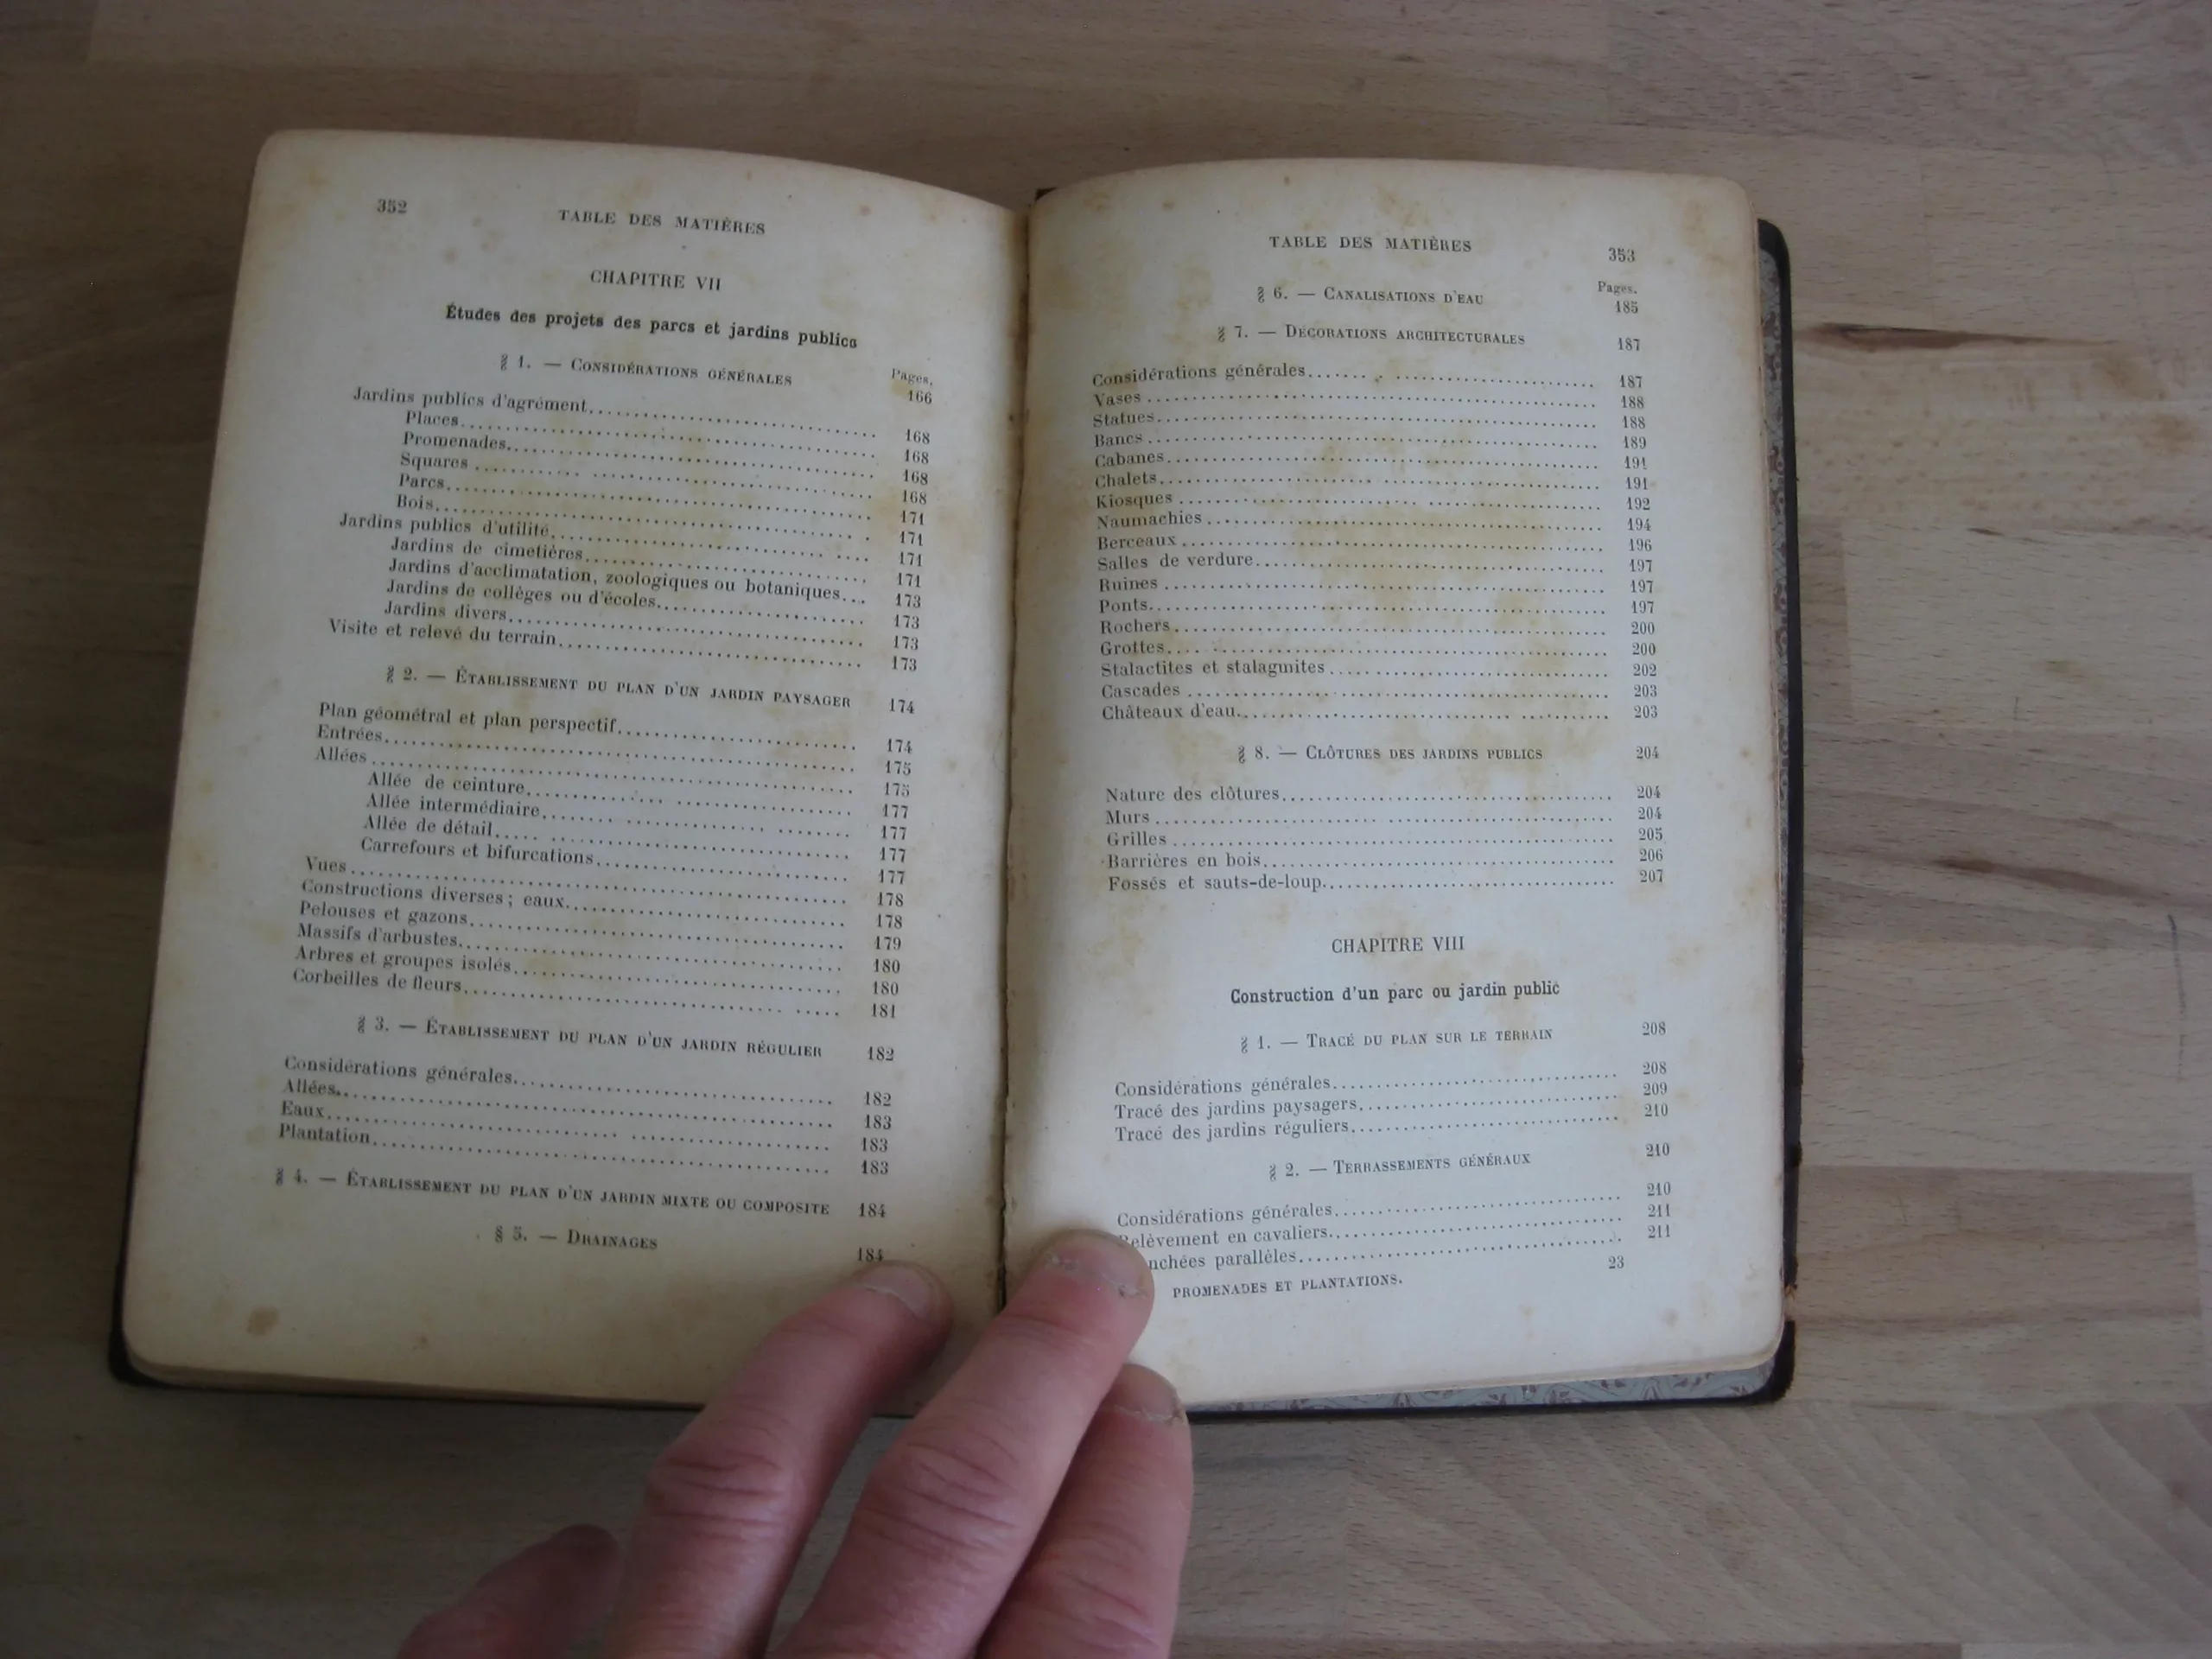 352 TABLE DES MATIÈRES
CHAPITRE VII
Études des projets des parcs et jardins publics
§ 1. — CONSIDÉRATIONS GÉNÉRALES Pages. 166
Jardins publics d'agrément 168
Places 168
Promenades 168
Squares 168
Parcs 171
Bois 171
Jardins publics d'utilité 171
Jardins de cimetières 171
Jardins d'acclimatation, zoologiques ou botaniques 173
Jardins de collèges ou d'écoles 173
Jardins divers 173
Visite et relevé du terrain 173
§ 2. — ÉTABLISSEMENT DU PLAN D'UN JARDIN PAYSAGER 174
Plan géométral et plan perspectif 174
Entrées 175
Allées 175
Allée de ceinture 177
Allée intermédiaire 177
Allée de détail 177
Carrefours et bifurcations 177
Vues 178
Constructions diverses; eaux 178
Pelouses et gazons 179
Massifs d'arbustes 180
Arbres et groupes isolés 180
Corbeilles de fleurs 181
§ 3. — ÉTABLISSEMENT DU PLAN D'UN JARDIN RÉGULIER 182
Considérations générales 182
Allées 183
Eaux 183
Plantation 183
§ 4. — ÉTABLISSEMENT DU PLAN D'UN JARDIN MIXTE OU COMPOSITE 184
§ 5. — DRAINAGES 184
TABLE DES MATIÈRES 353
Pages.
§ 6. — CANALISATIONS D'EAU 185
§ 7. — DÉCORATIONS ARCHITECTURALES 187
Considérations générales 187
Vases 188
Statues 188
Bancs 189
Cabanes 191
Chalets 191
Kiosques 192
Naumachies 194
Berceaux 196
Salles de verdure 197
Ruines 197
Ponts 197
Rochers 200
Grottes 200
Stalactites et stalagmites 202
Cascades 203
Châteaux d'eau 203
§ 8. — CLÔTURES DES JARDINS PUBLICS 204
Nature des clôtures 204
Murs 204
Grilles 205
Barrières en bois 206
Fossés et sauts-de-loup 207
CHAPITRE VIII
Construction d'un parc ou jardin public
§ 1. — TRACÉ DU PLAN SUR LE TERRAIN 208
Considérations générales 208
Tracé des jardins paysagers 209
Tracé des jardins réguliers 210
§ 2. — TERRASSEMENTS GÉNÉRAUX 210
Considérations générales 210
Relèvement en cavaliers 211
nchées parallèles 211
PROMENADES ET PLANTATIONS. 23